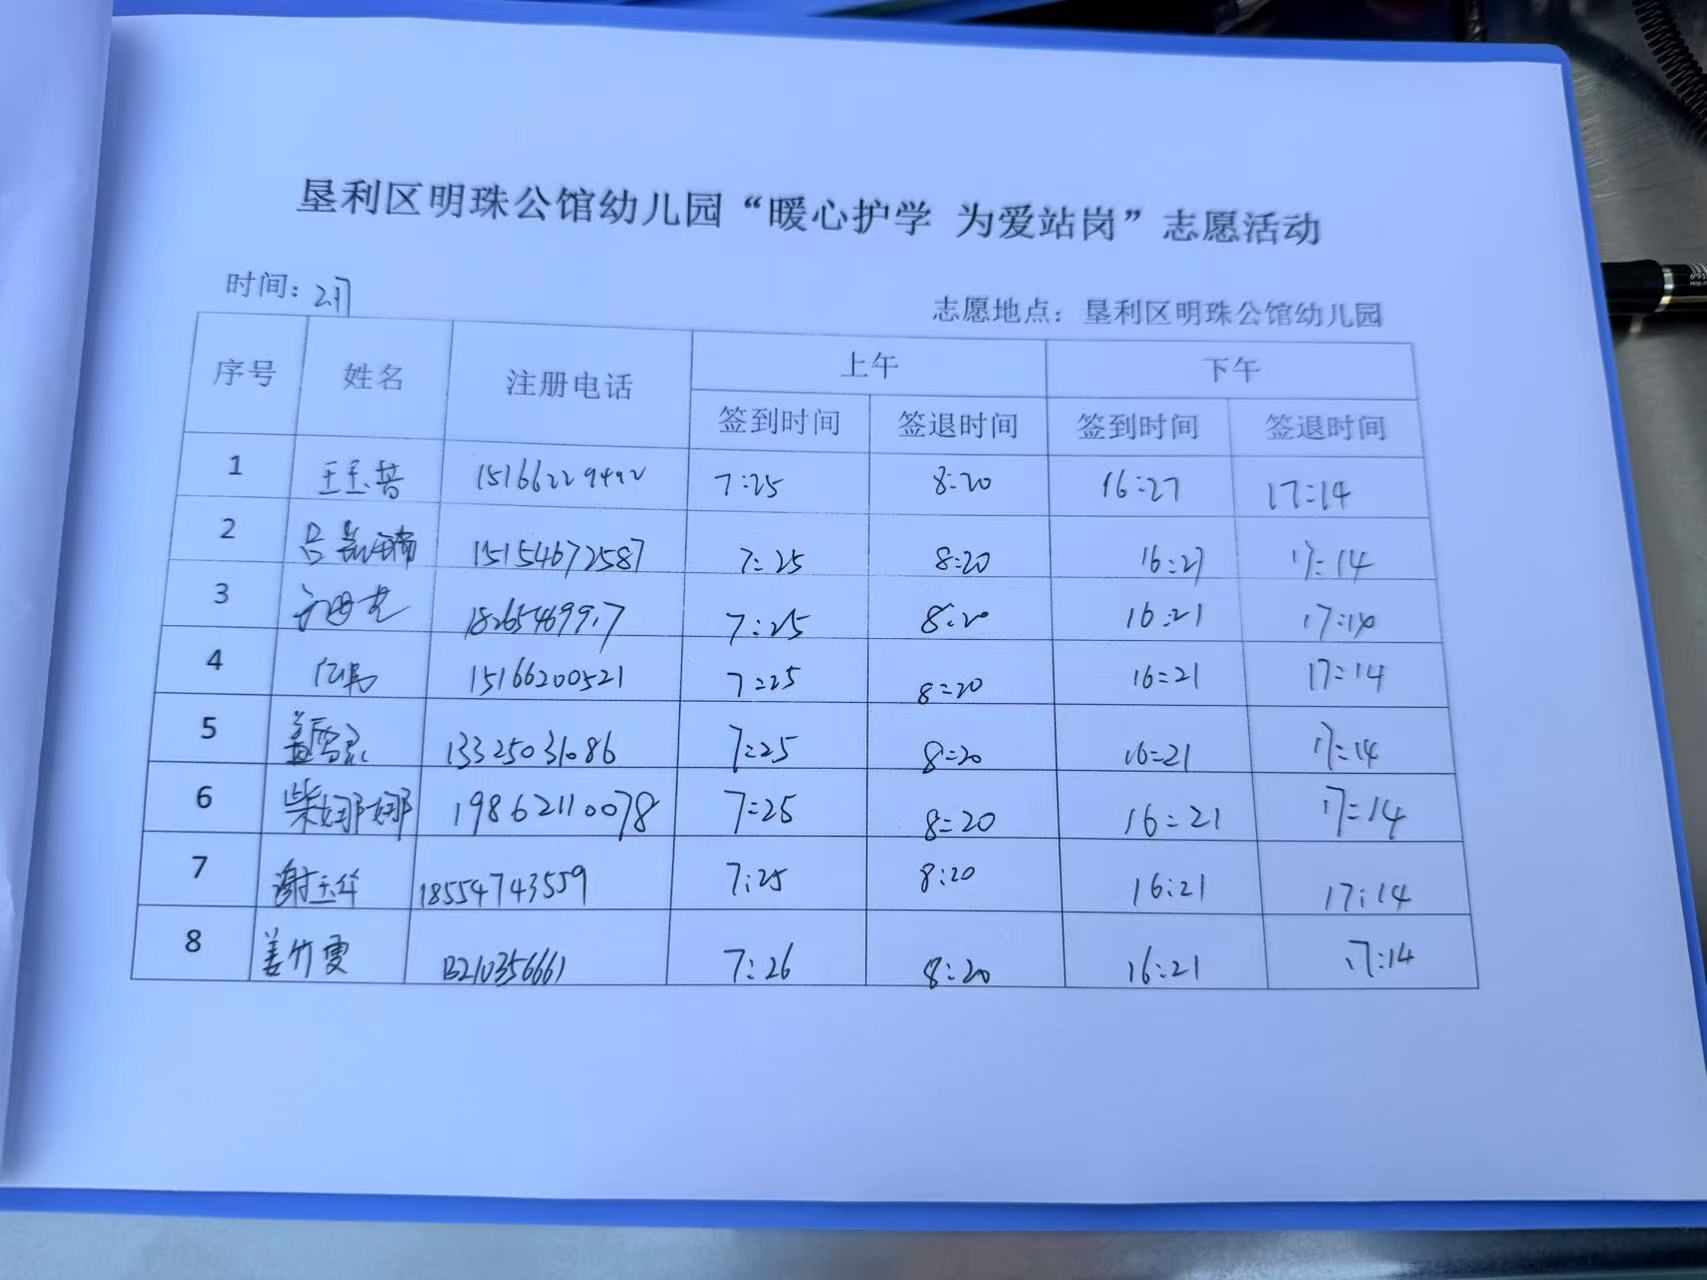 垦利区明珠公馆幼儿园“暖心护学 为爱站岗”志愿活动
时间: 志愿地点: 垦利区明珠公馆幼儿园
序号 姓名 注册电话 上午 下午
签到时间 签退时间 签到时间 签退时间
1 15166229492 7:25 8:20 16:27 17:14
2 15154672587 7:25 8:20 16:27 17:14
3 7:25 8:20 16:21 17:14
4 15166200521 7:25 8:20 16:21 17:14
5 13325031086 7:25 8:20 16:21 17:14
6 柴娜娜 19862110078 7:25 8:20 16:21 17:14
7 谢玉华 18554743559 7:25 8:20 16:21 17:14
8 姜竹雯 13210356661 7:26 8:20 16:21 17:14